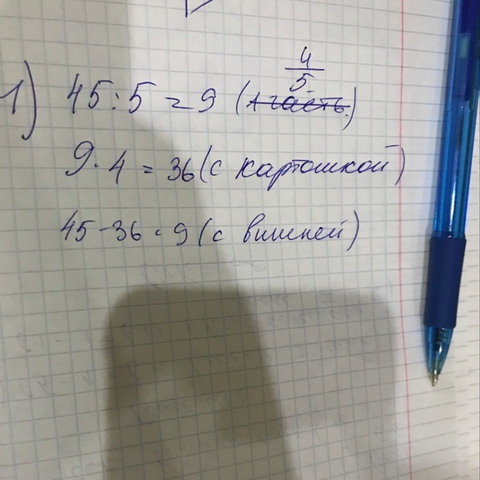 1) 45:5=9 (1 часть) 4/5
9·4=36 (с картошкой)
45-36=9 (с вишней)